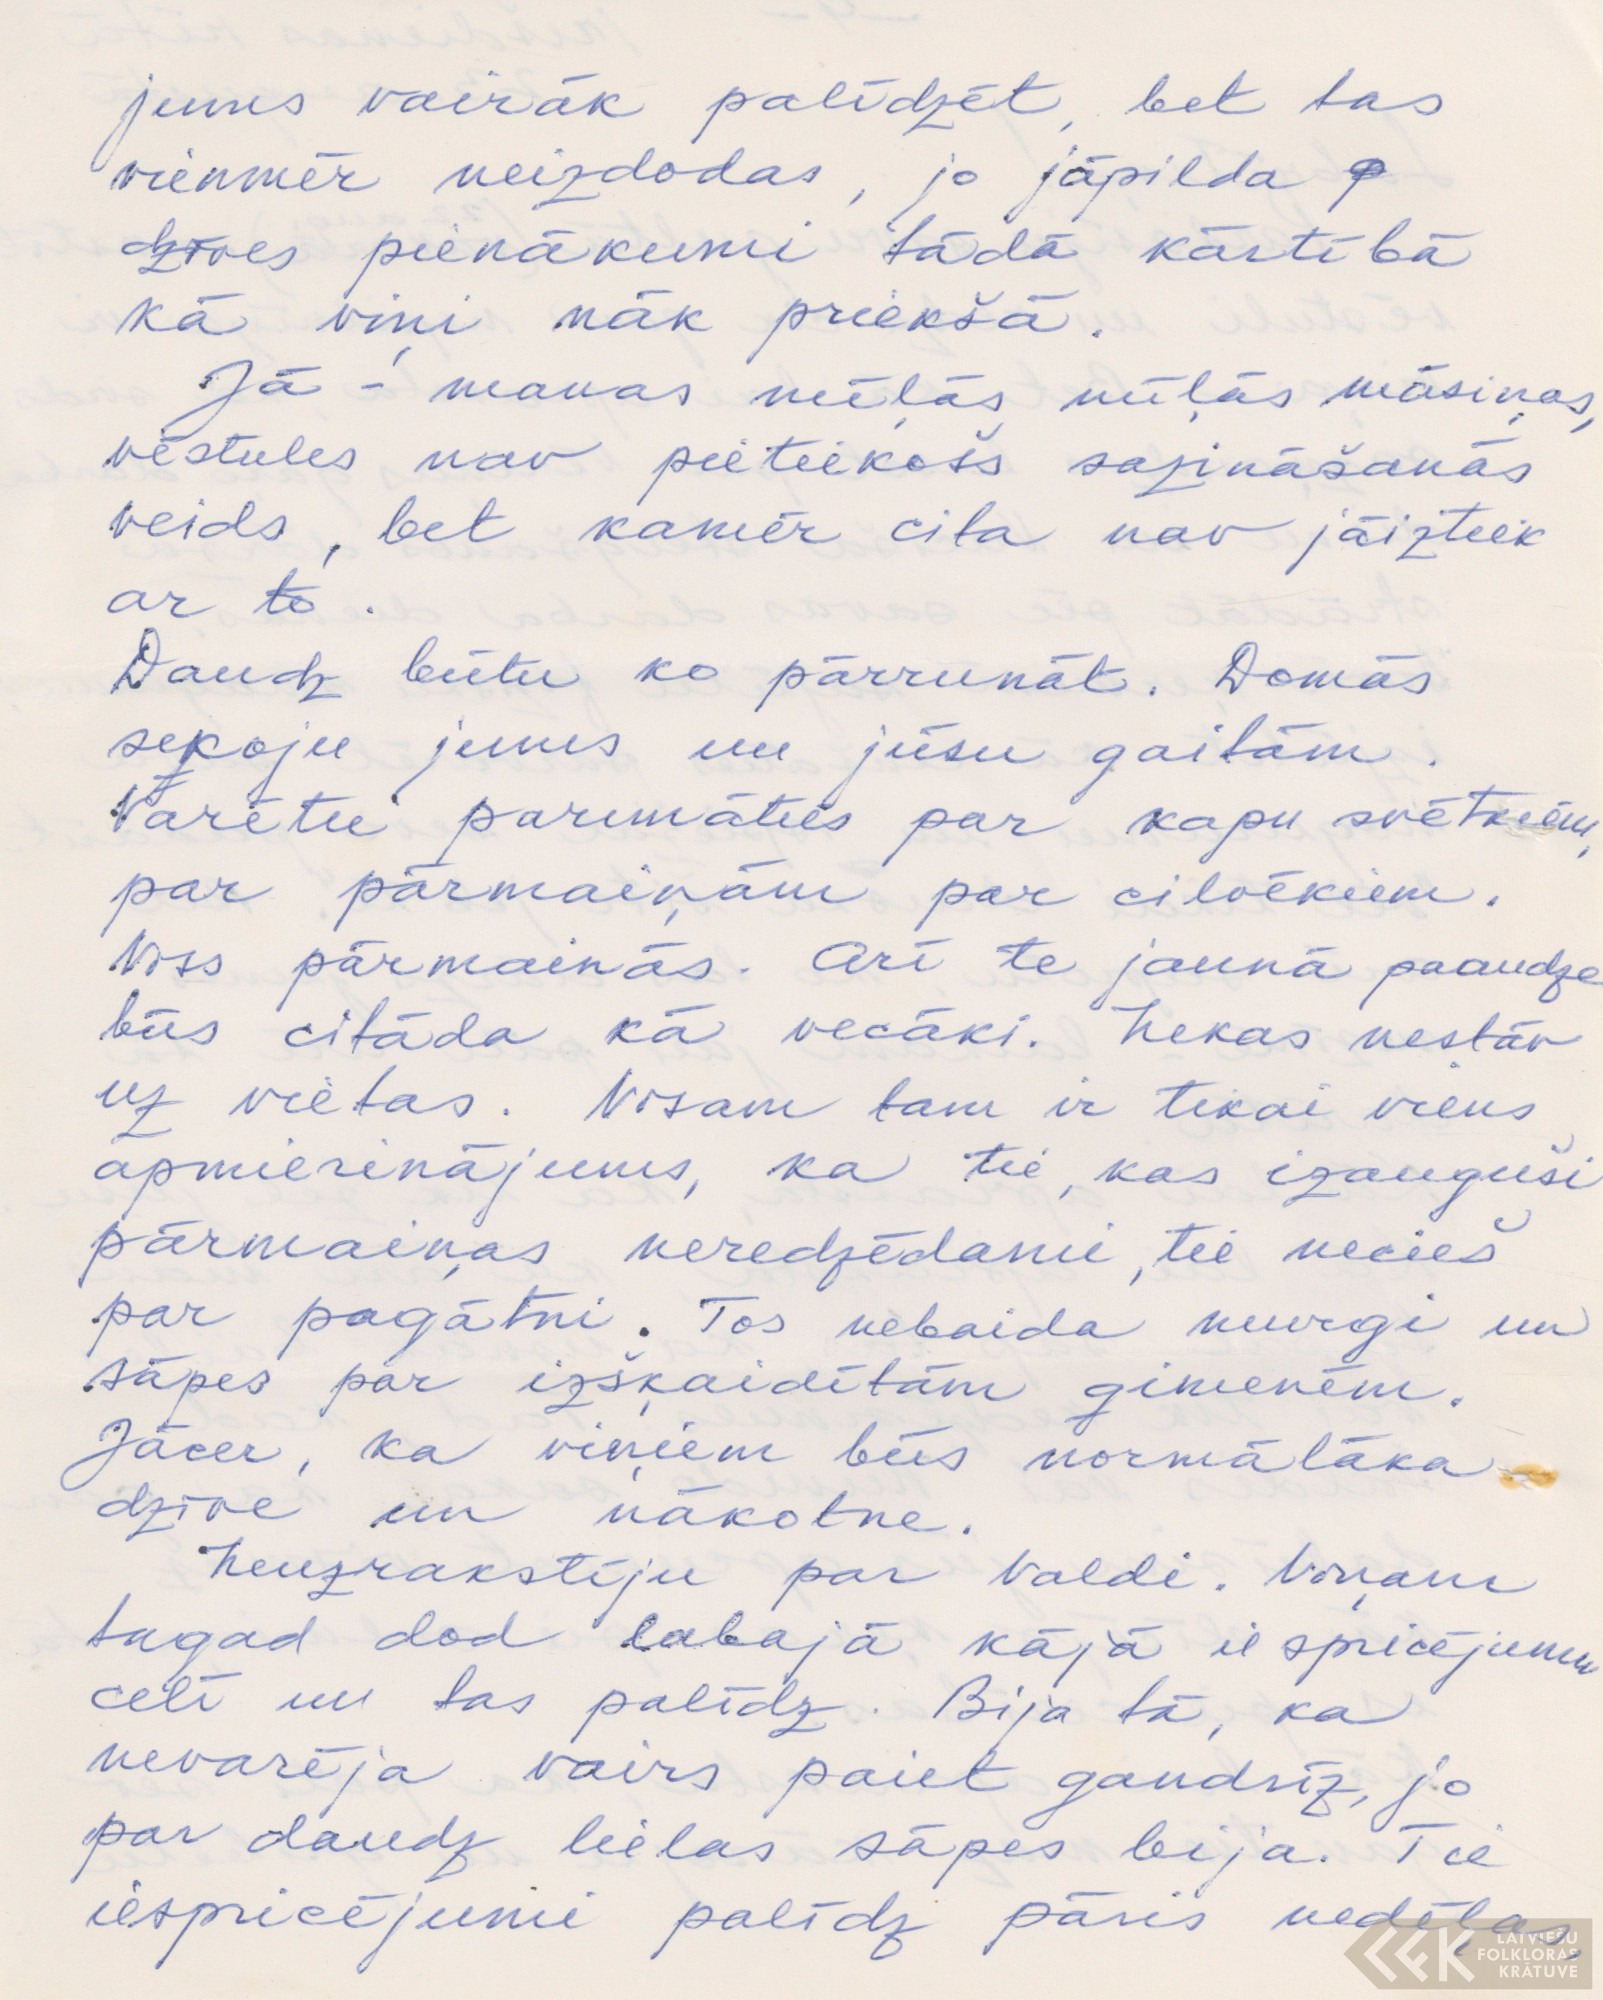 jums vairāk palīdzēt, bet tas
vienmēr neizdodas, jo jāpilda
dzīves pienākumi tādā kārtībā
kā viņi nāk priekšā.
Jā - manas mīļās mīļās māsiņas,
vēstules nav pietiekošs sazināšanās
veids, bet kamēr cita nav jāiztiek
ar to.
Daudz būtu ko pārrunāt. Domās
sekoju jums un jūsu gaitām.
Varētu parunāties par kapu svētkiem,
par pārmaiņām par cilvēkiem.
Viss pārmainās. Arī te jaunā paaudze
būs citāda kā vecāki. Nekas nestāv
uz vietas. Visam tam ir tikai viens
apmierinājums, ka tie, kas izauguši
pārmaiņas neredzēdami, tie necieš
par pagātni. Tos nebaida murgi un
sāpes par izšķaidītām ģimenēm.
Jācer, ka viņiem būs normālāka
dzīve un nākotne.
Neuzrakstīju par Valdi. Viņam
tagad dod labajā kājā iespricējumu
celī un tas palīdz. Bija tā, ka
nevarēja vairs paiet gandrīz, jo
par daudz lielas sāpes bija. Tie
iespricējumi palīdz pāris nedēļas,
LATVIEŠU
FOLKLORAS
KRĀTUVE